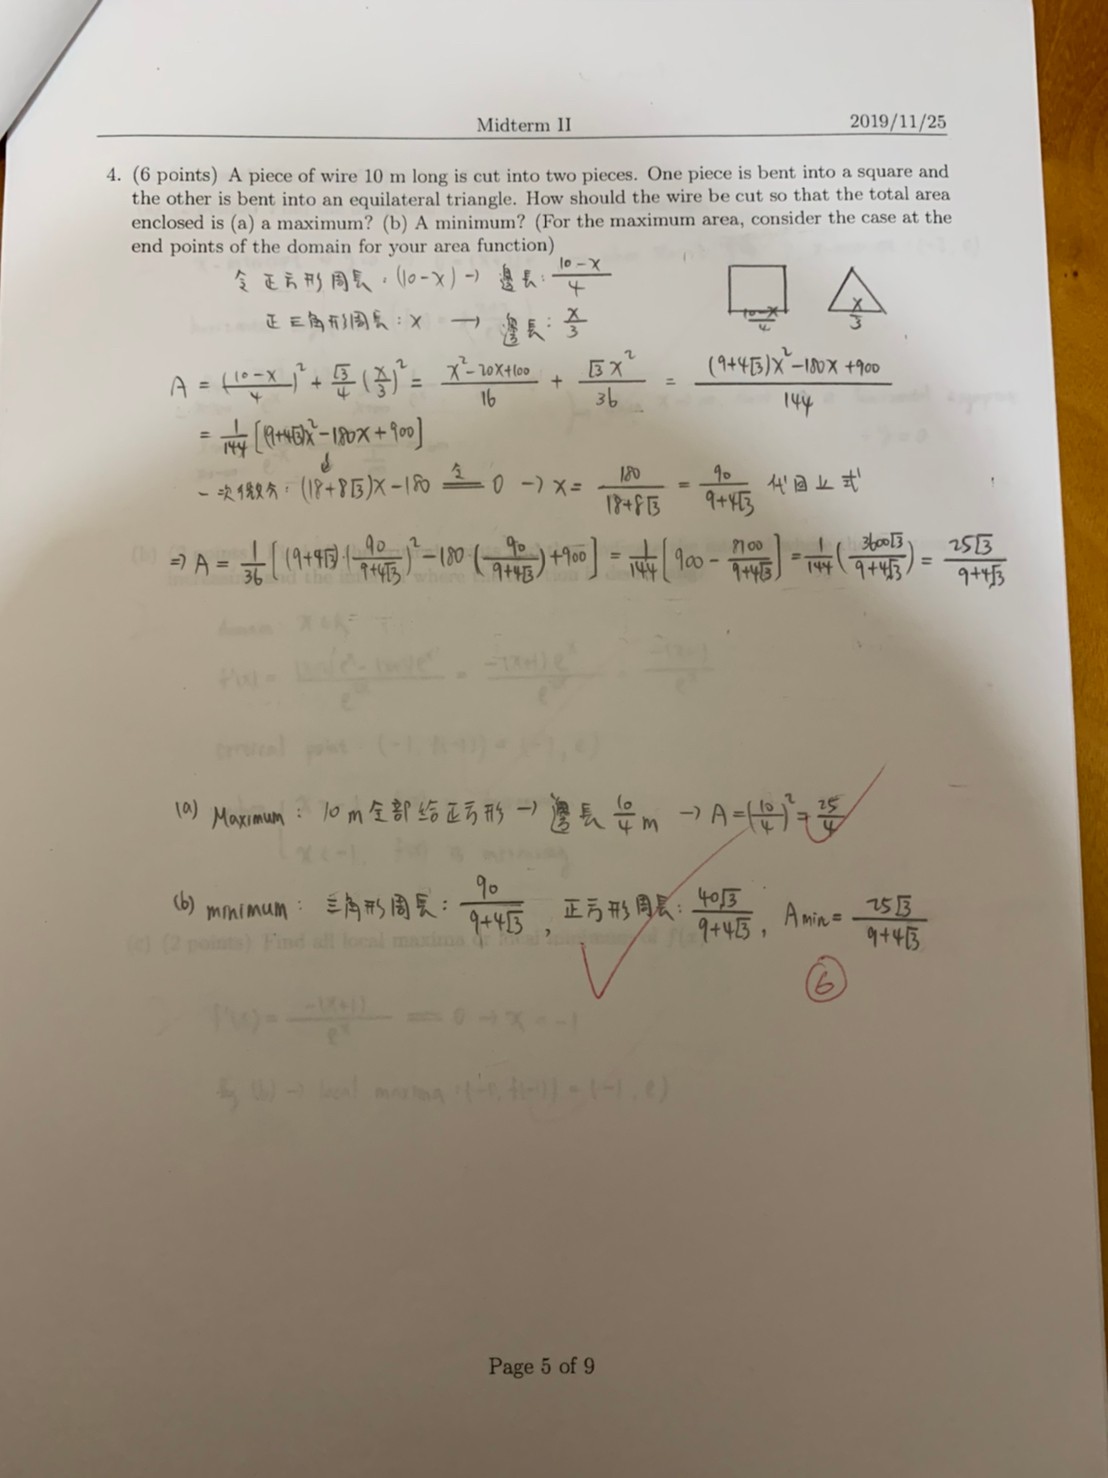 Midterm II 2019/11/25
4. (6 points) A piece of wire 10 m long is cut into two pieces. One piece is bent into a square and
the other is bent into an equilateral triangle. How should the wire be cut so that the total area
enclosed is (a) a maximum? (b) A minimum? (For the maximum area, consider the case at the
end points of the domain for your area function)
令正方形周長:(10-x) → 邊長: \frac{10-x}{4}
正三角形周長:x → 邊長: \frac{x}{3}
\frac{10-x}{4} \frac{x}{3}
A = (\frac{10-x}{4})^2 + \frac{√3}{4}(\frac{x}{3})^2 = \frac{x^2-20x+100}{16} + \frac{√3x^2}{36} = \frac{(9+4√3)x^2-180x+900}{144}
= \frac{1}{144}[(9+4√3)x^2-180x+900]
一次微分:(18+8√3)x-180 令= 0 → x = \frac{180}{18+8√3} = \frac{90}{9+4√3} 代回上式
⇒ A = \frac{1}{36}[(9+4√3)·(\frac{90}{9+4√3})^2-180(\frac{90}{9+4√3})+900] = \frac{1}{144}[900-\frac{8100}{9+4√3}] = \frac{1}{144}(\frac{3600√3}{9+4√3}) = \frac{25√3}{9+4√3}
(a) Maximum: 10 m 全部給正方形 → 邊長 \frac{10}{4} m → A = (\frac{10}{4})^2 = \frac{25}{4}
(b) minimum: 三角形周長: \frac{90}{9+4√3}, 正方形周長: \frac{40√3}{9+4√3}, A min = \frac{25√3}{9+4√3}
6
Page 5 of 9